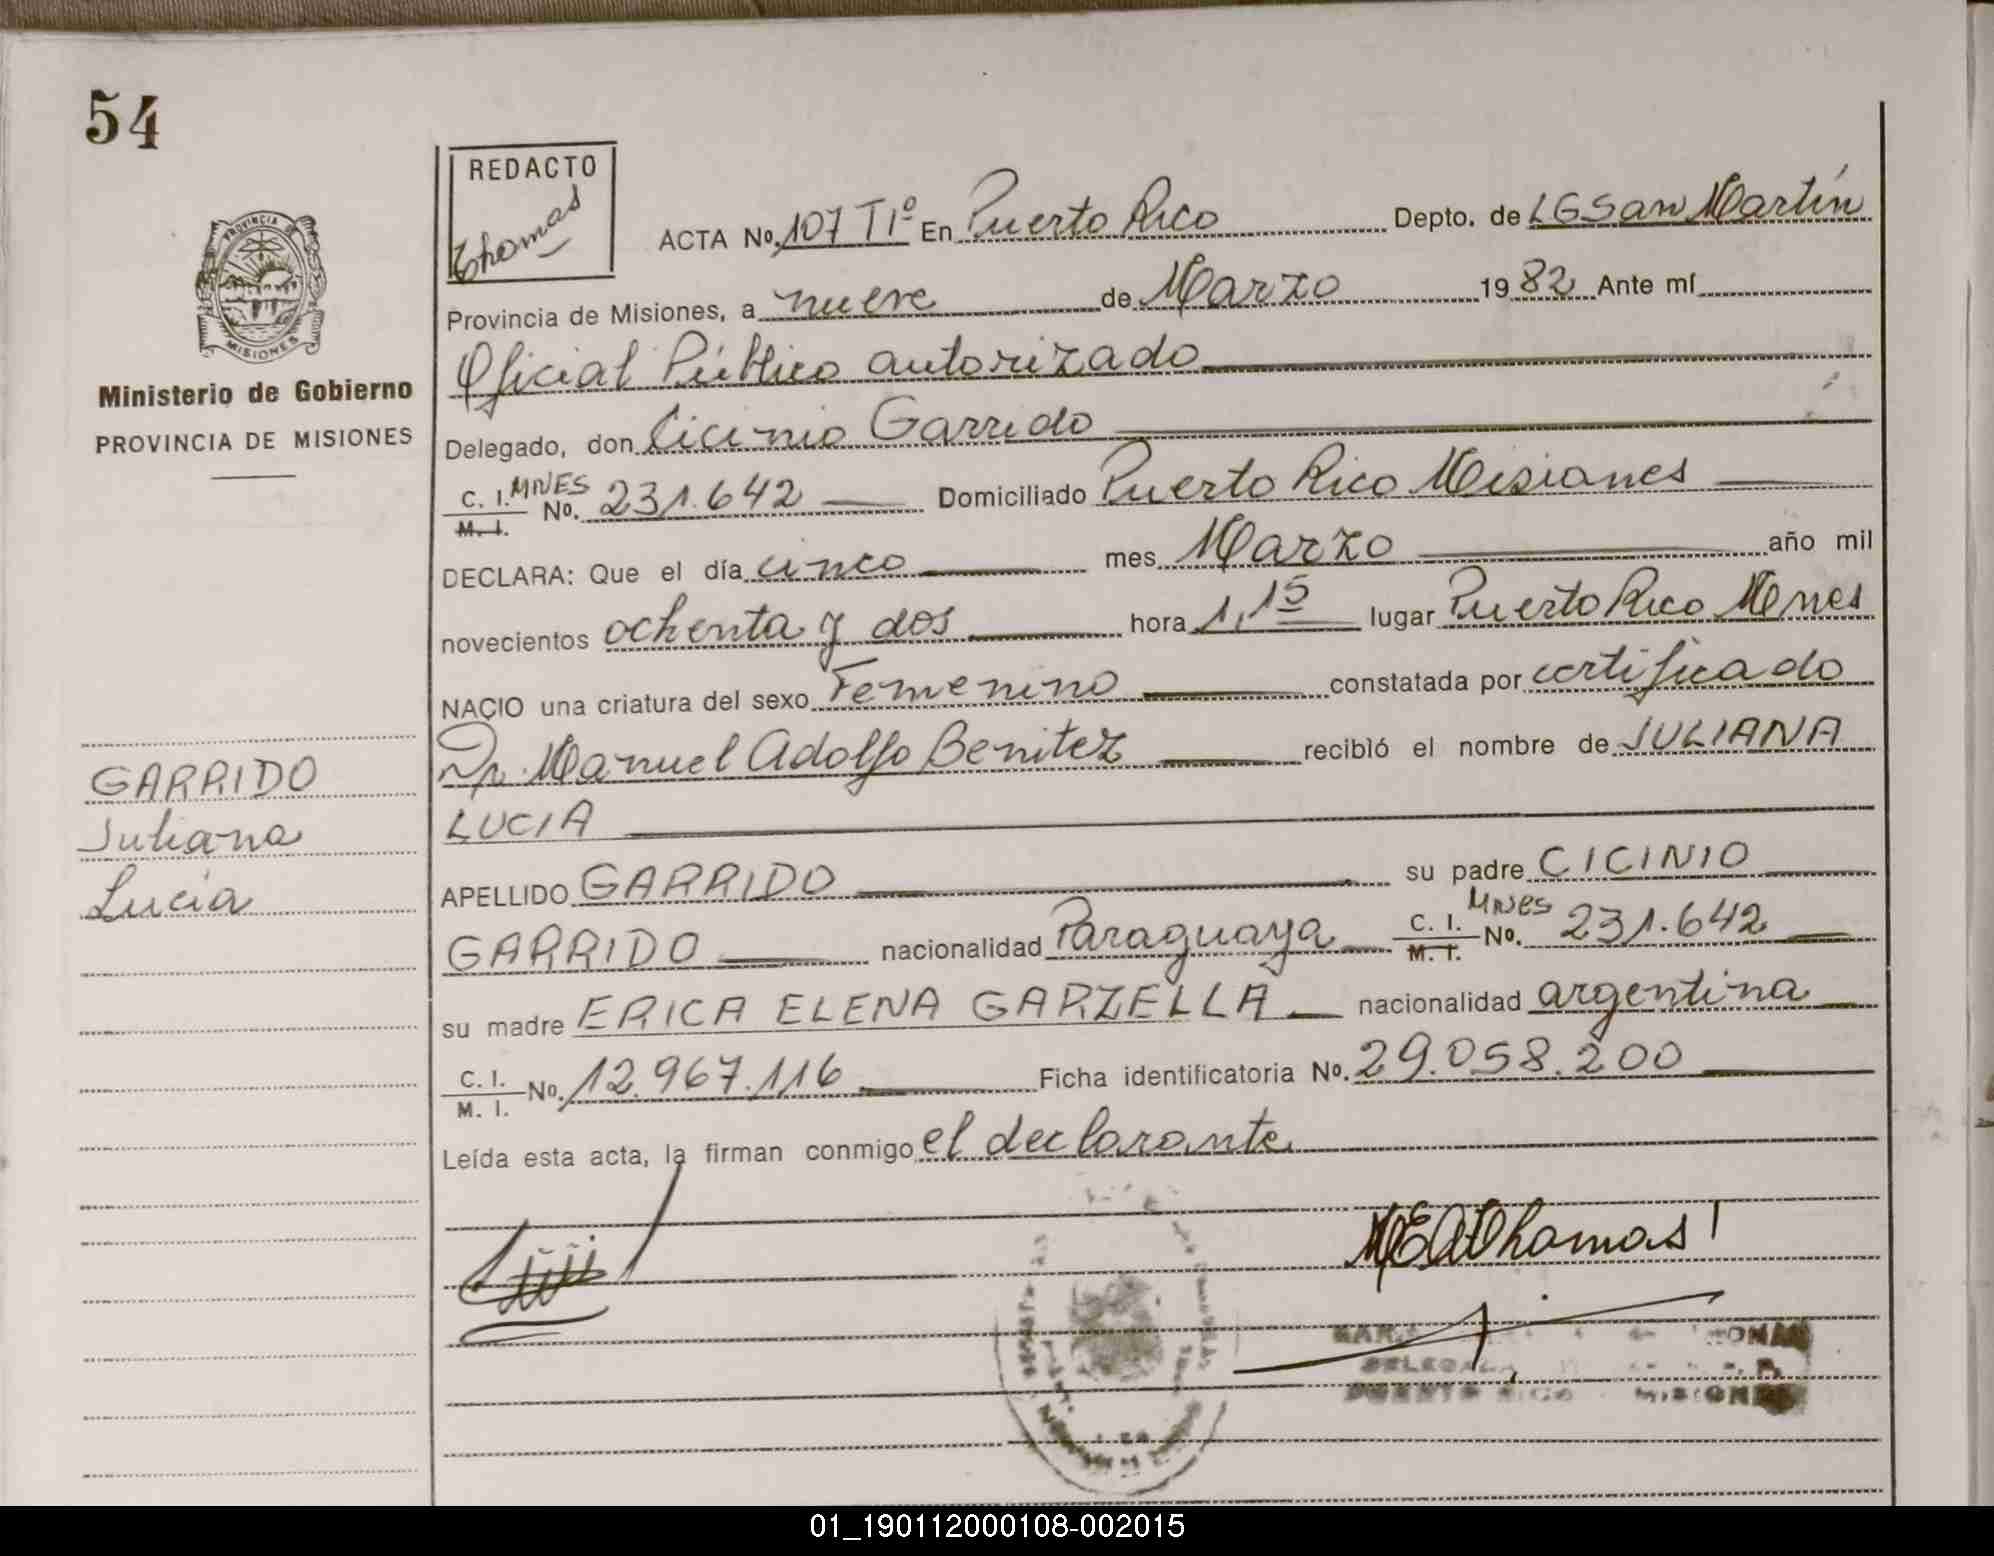 54
REDACTO
Thomas
PROVINCIA DE
MISIONES
Ministerio de Gobierno
PROVINCIA DE MISIONES
GARRIDO
Juliana
Lucia
ACTA No. 107 T1º En Puerto Rico Depto. de LGSan Martín
Provincia de Misiones, a nueve de Marzo 1982 Ante mí
Oficial Público autorizado
Delegado, don Cicinio Garrido
C. I. MNES
M. I. No. 231.642 Domiciliado Puerto Rico Misiones
DECLARA: Que el día cinco mes Marzo año mil
novecientos ochenta y dos hora 1,15 lugar Puerto Rico Mnes
NACIO una criatura del sexo Femenino constatada por certificado
Dr. Manuel Adolfo Benitez recibió el nombre de JULIANA
LUCIA
APELLIDO GARRIDO su padre CICINIO
GARRIDO nacionalidad Paraguaya C. I. M. I. Mnes No. 231.642
su madre ERICA ELENA GARZELLA nacionalidad argentina
C. I. M. I. No. 12.967.116 Ficha identificatoria No. 29.058.200
Leída esta acta, la firman conmigo el declarante
MEAThomas
PUERTO RICO MISIONES
01_190112000108-002015